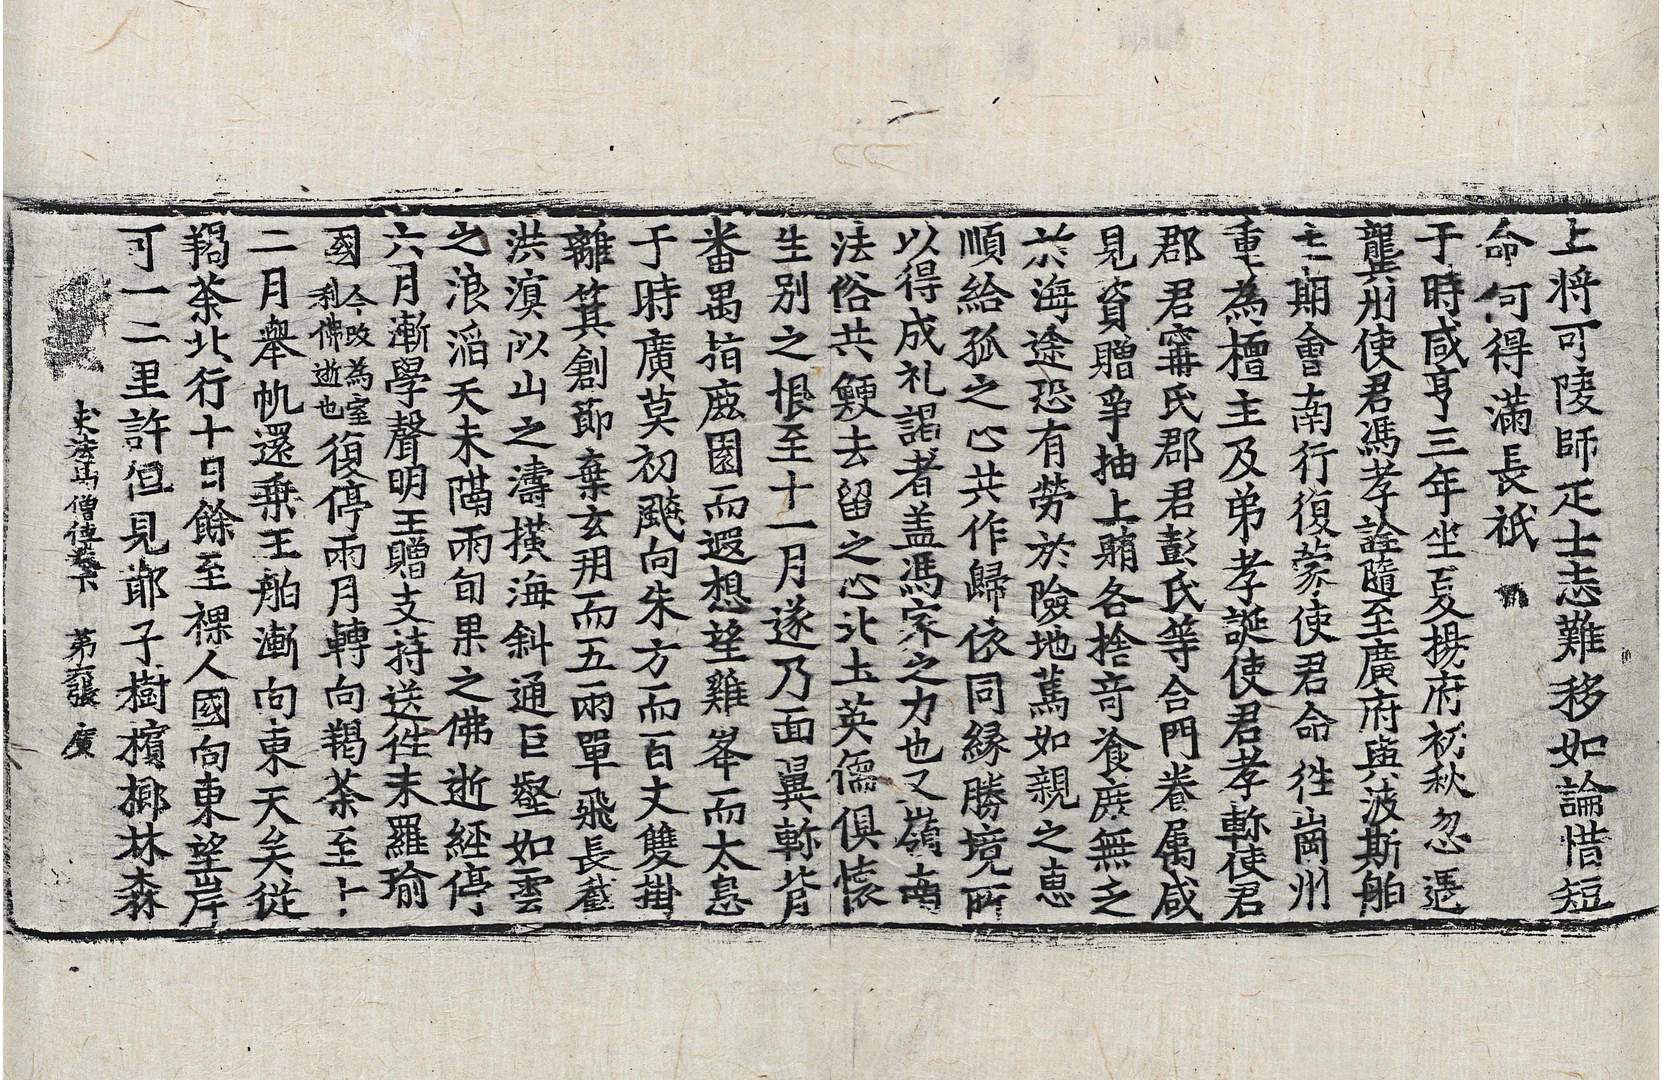 上將可陵師疋士志難移如論惜短
命何得滿長祇
于時咸亨三年坐夏揚府初秋忽遇
龔州使君馮孝詮隨至廣府與波斯舶
主期會南行復蒙使君命往崗州
重為檀主及弟孝誕使君孝軫使君
郡君甯氏郡君彭氏等合門眷属咸
見資贈爭抽上賄各捨奇飡庶無乏
於海途恐有勞於險地篤如親之恵
順給孤之心共作歸依同緣勝境所
以得成礼謁者盖馮家之力也又嶺南
法俗共鯁去留之心北土英儒俱懷
生別之恨至十一月遂乃面翼軫背
番禺指鹿園而遐想望雞峯而太息
于時廣莫初飈向朱方而百丈雙掛
離箕創節棄玄朔而五兩單飛長截
洪溟似山之濤横海斜通巨壑如雲
之浪滔天未隔兩旬果之佛逝經停
六月漸學聲明王贈支持送往末羅瑜
國今改為室利佛逝也復停兩月轉向羯荼至十
二月舉帆還乗王舶漸向東天矣從
羯荼北行十日餘至裸人國向東望岸
可一二里許但見耶子樹檳榔林森
求法高僧傳卷下 第六張 廣